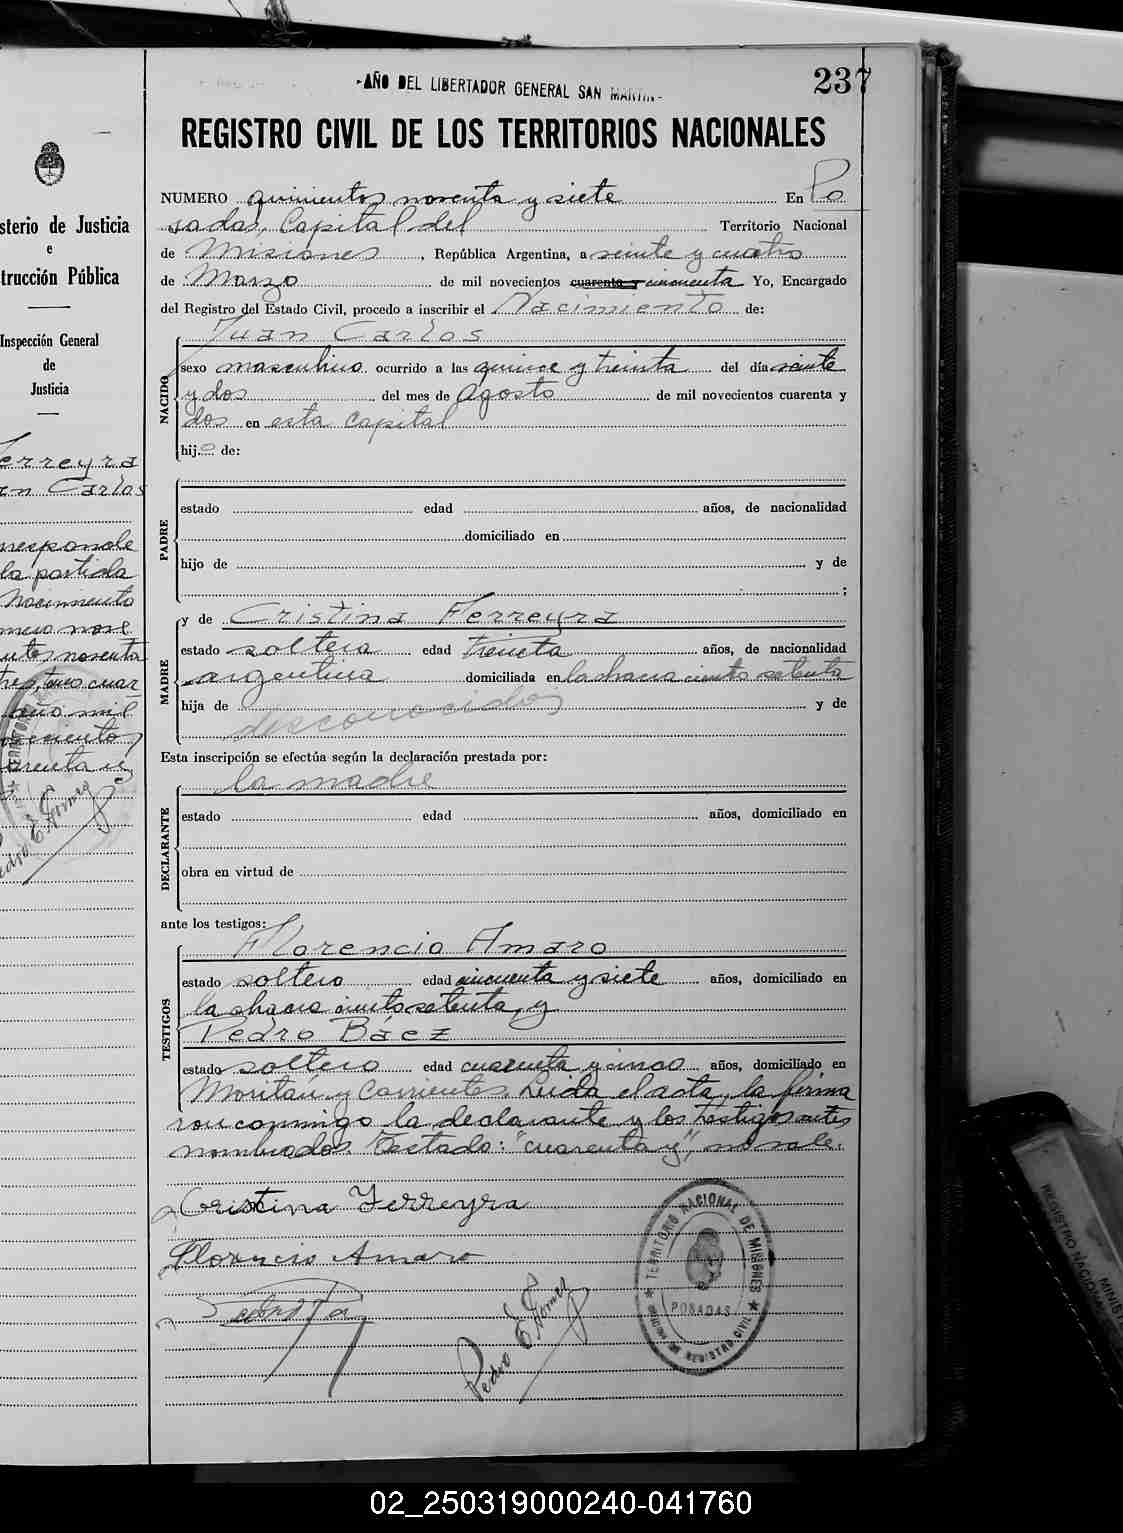 -AÑO DEL LIBERTADOR GENERAL SAN MARTIN-
237
REGISTRO CIVIL DE LOS TERRITORIOS NACIONALES
NUMERO quinientos noventa y siete En Po
sadas, Capital del Territorio Nacional
de Misiones, República Argentina, a veinte y cuatro
de Marzo de mil novecientos cuarenta y cincuenta Yo, Encargado
del Registro del Estado Civil, procedo a inscribir el Nacimiento de:
Juan Carlos
NACIDO
sexo masculino ocurrido a las quince y treinta del día veinte
y dos del mes de Agosto de mil novecientos cuarenta y
dos en esta capital
hijo de:
PADRE
estado edad años, de nacionalidad
domiciliado en
hijo de y de
;
MADRE
y de Cristina Ferreyra
estado soltera edad treinta años, de nacionalidad
argentina domiciliada en la chacra ciento setenta
hija de desconocidos y de
Esta inscripción se efectúa según la declaración prestada por:
la madre
DECLARANTE
estado edad años, domiciliado en
obra en virtud de
ante los testigos:
TESTIGOS
Florencio Amaro
estado soltero edad cincuenta y siete años, domiciliado en
la chacra ciento setenta y
Pedro Báez
estado soltero edad cuarenta y cinco años, domiciliado en
y Corrientes. Leida el acta, la firma
ron conmigo la declarante y los testigos antes
nombrados. Testado: "cuarenta y", no vale.
Cristina Ferreyra
Florencio Amaro
Pedro E. Gomez
TERRITORIO NACIONAL DE MISIONES
POSADAS
OFICINA DE REGISTRO CIVIL
sterio de Justicia
e
trucción Pública
Inspección General
de
Justicia
Ferreyra
an Carlos
rresponde
la partida
Nacimiento
mero nove
noventa
tres, tomo cuar
año mil
novecientos
arenta y
Pedro E. Gomez
REGISTRO NACIONAL
MINIST
02_250319000240-041760